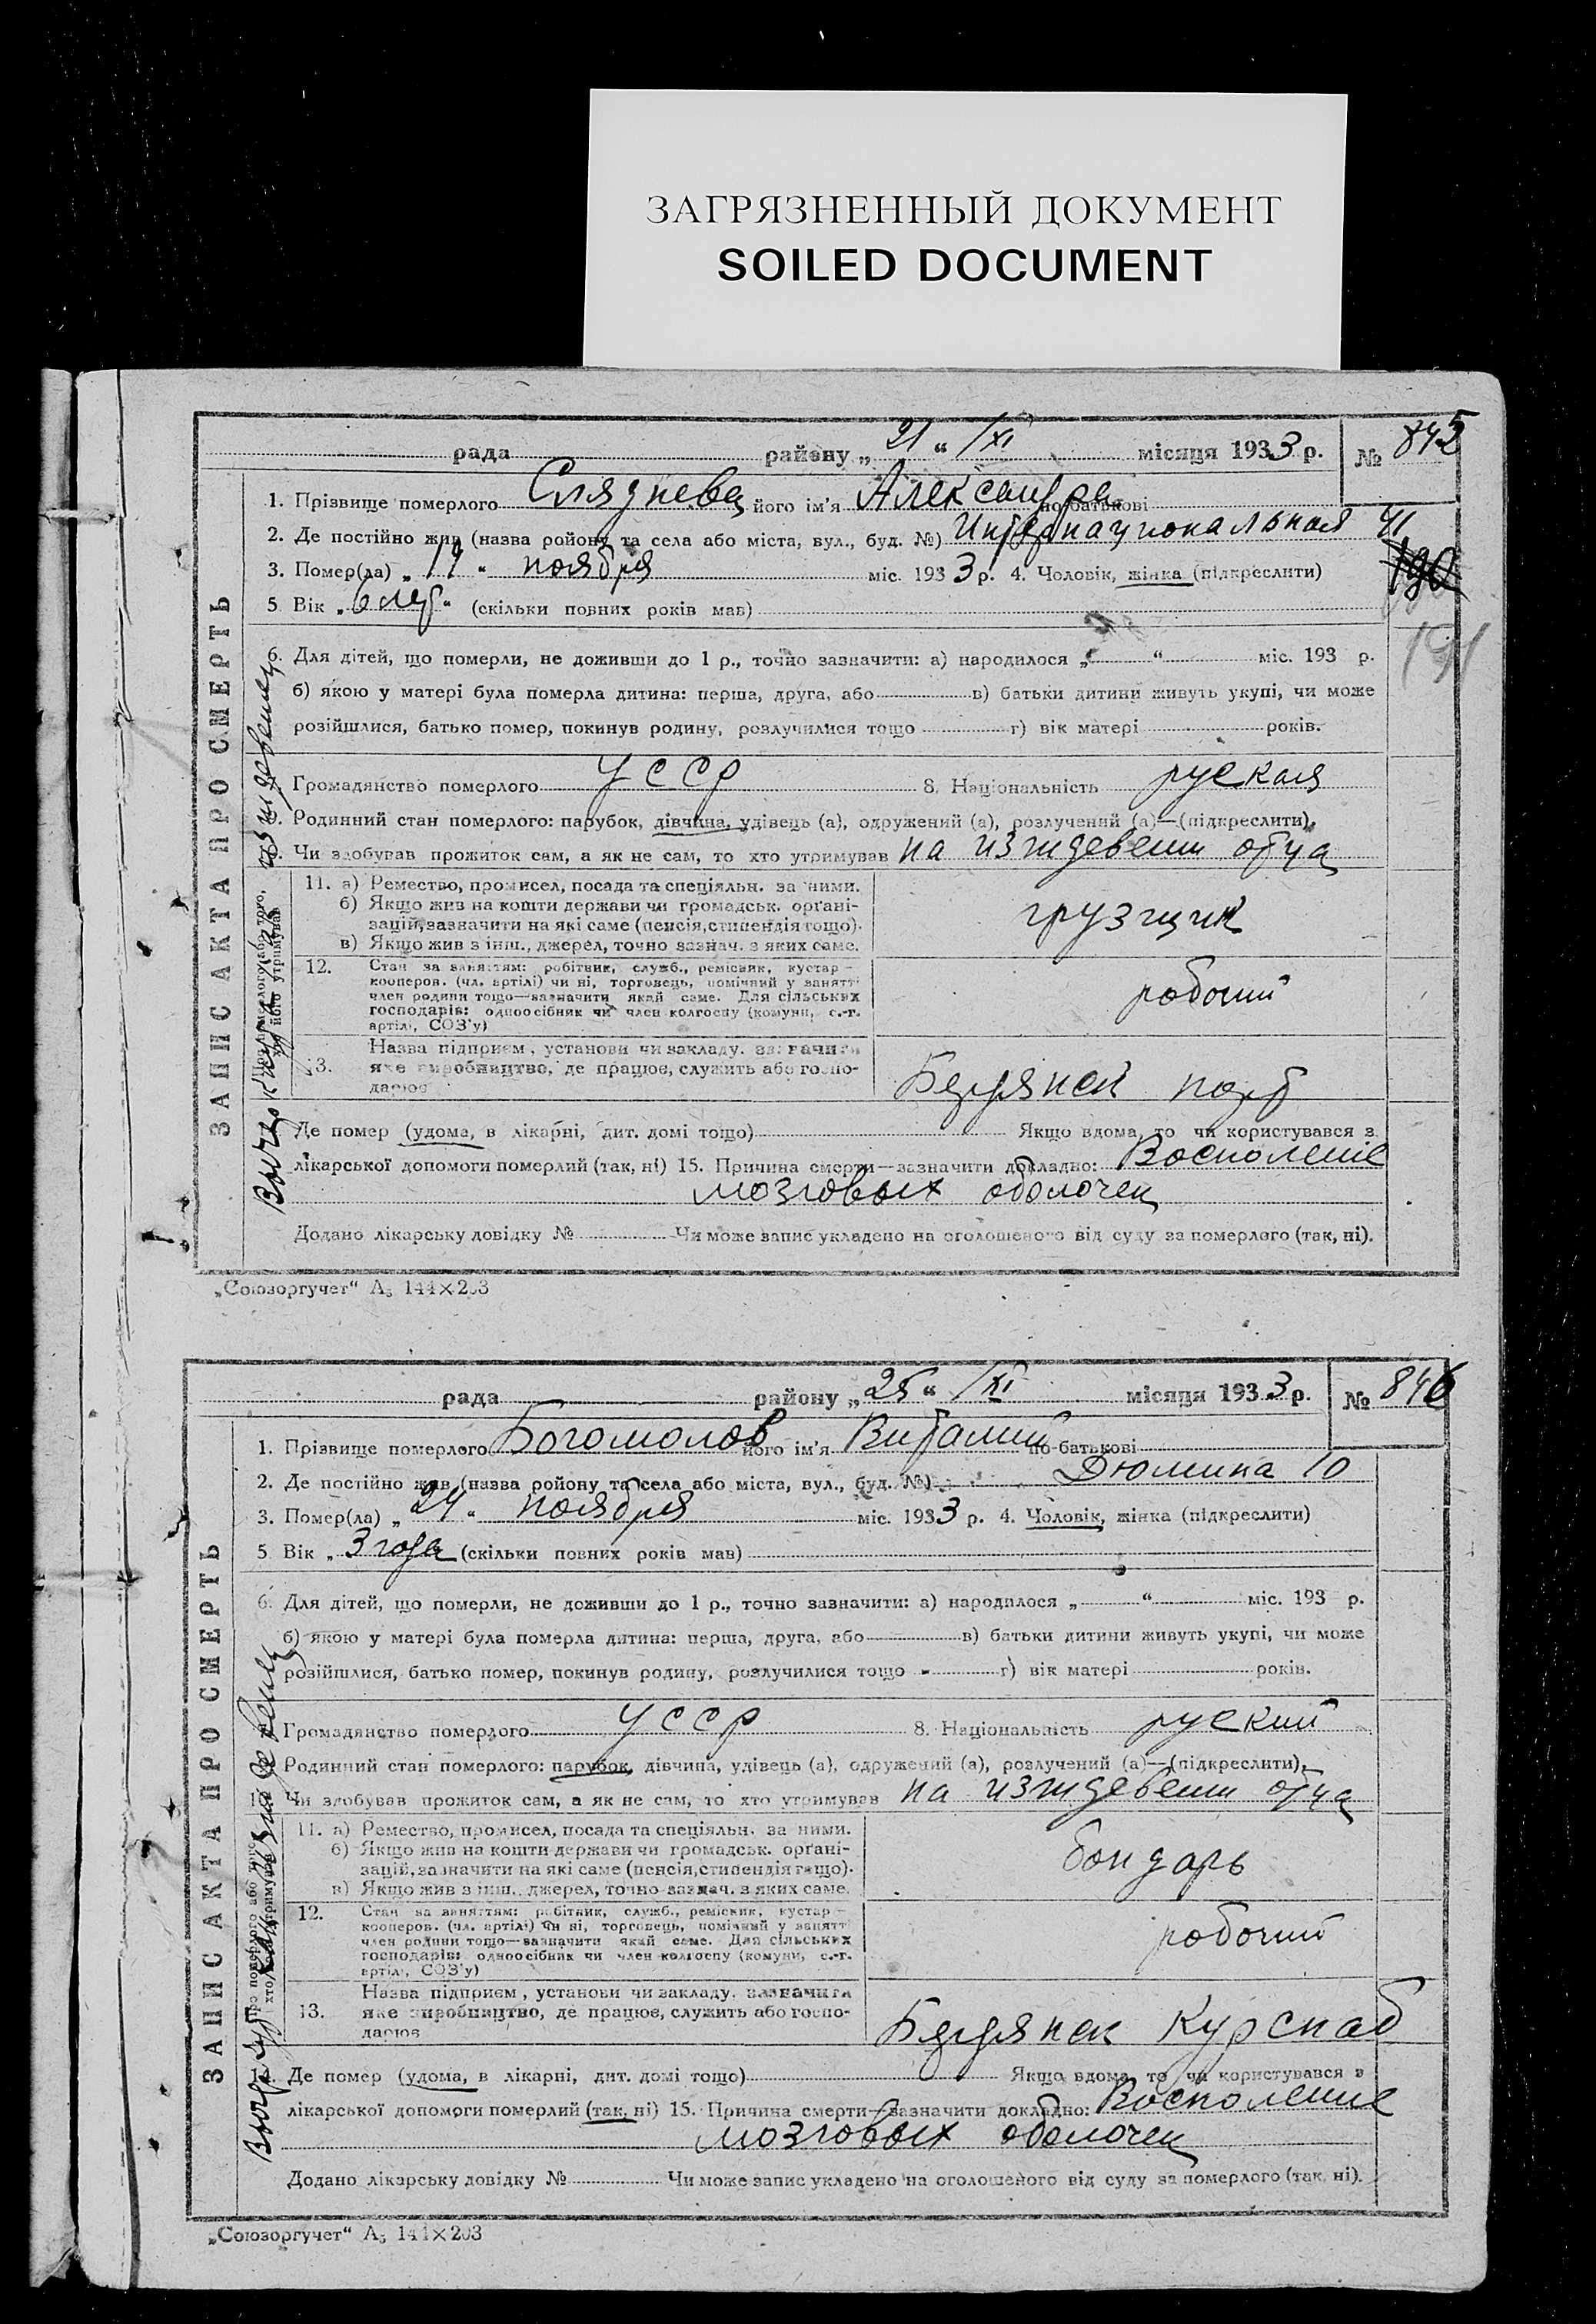 ЗАГРЯЗНЕННЫЙ ДОКУМЕНТ
SOILED DOCUMENT
рада району „21“ /XI місяця 1933 р. № 845
1. Прізвище померлого його ім'я Александра по-батькові
2. Де постійно жив (назва району та села або міста, вул., буд. №) Интернациональная 41
3. Помер(ла) „19“ ноября міс. 1933 р. 4. Чоловік, жінка (підкреслити)
190
5. Вік „6 лет“ (скільки повних років мав)
191
6. Для дітей, що померли, не доживши до 1 р., точно зазначити: а) народилося „ “ міс. 193 р.
б) якою у матері була померла дитина: перша, друга, або в) батьки дитини живуть укупі, чи може
розійшлися, батько помер, покинув родину, розлучилися тощо г) вік матері років.
Громадянство померлого УССР 8. Національність руская
Родинний стан померлого: парубок, дівчина, удівець (а), одружений (а), розлучений (а)—(підкреслити).
Чи здобував прожиток сам, а як не сам, то хто утримував на изждевении отца
11. а) Ремество, промисел, посада та спеціяльн. за ними.
б) Якщо жив на кошти держави чи громадськ. орґані-
зацій, зазначити на які саме (пенсія, стипендія тощо).
в) Якщо жив з інш., джерел, точно зазнач. з яких саме.
грузчик
12. Стан за заняттям: робітник, служб., ремісник, кустар—
кооперов. (чл. артілі) чи ні, торговець, помічний у занятті
член родини тощо—зазначити який саме. Для сільських
господарів: одноосібник чи член колгоспу (комуни, с.-г.
артілі, СОЗ'у)
робочий
13. Назва підприєм., установи чи закладу. зазначити
яке виробництво, де працює, служить або госпо-
дарює
Бердянск порт
Де помер (удома, в лікарні, дит. домі тощо) Якщо вдома, то чи користувався з
лікарської допомоги померлий (так, ні) 15. Причина смерти—зазначити докладно: Восполение
мозговых оболочек
Додано лікарську довідку № Чи може запис укладено на оголошеного від суду за померлого (так, ні).
ЗАПИС АКТА ПРО СМЕРТЬ
Про померлого або того,
хто його утримував
„Союзоргучет“ А₅ 144×203
рада району „25“ /XI місяця 1933 р. № 846
1. Прізвище померлого Богомолов його ім'я Виталий по-батькові
2. Де постійно жив (назва району та села або міста, вул., буд. №) Дюмина 10
3. Помер(ла) „24“ ноября міс. 1933 р. 4. Чоловік, жінка (підкреслити)
5 Вік „3 года (скільки повних років мав)
6. Для дітей, що померли, не доживши до 1 р., точно зазначити: а) народилося „ “ міс. 193 р.
б) якою у матері була померла дитина: перша, друга, або в) батьки дитини живуть укупі, чи може
розійшлися, батько помер, покинув родину, розлучилися тощо г) вік матері років.
Громадянство померлого УССР 8. Національність руский
Родинний стан померлого: парубок, дівчина, удівець (а), одружений (а), розлучений (а)—(підкреслити).
Чи здобував прожиток сам, а як не сам, то хто утримував на изждевении отца
11. а) Ремество, промисел, посада та спеціяльн. за ними.
б) Якщо жив на кошти держави чи громадськ. орґані-
зацій, зазначити на які саме (пенсія, стипендія тощо).
в) Якщо жив з інш., джерел, точно зазнач. з яких саме.
бондарь
12. Стан за заняттям: робітник, служб., ремісник, кустар—
кооперов. (чл. артілі) чи ні, торговець, помічний у занятті
член родини тощо—зазначити який саме. Для сільських
господарів: одноосібник чи член колгоспу (комуни, с.-г.
артілі, СОЗ'у)
робочий
13. Назва підприєм., установи чи закладу. зазначити
яке виробництво, де працює, служить або госпо-
дарює
Бердянск Курснаб
Де помер (удома, в лікарні, дит. домі тощо) Якщо вдома, то чи користувався з
лікарської допомоги померлий (так, ні) 15. Причина смерти—зазначити докладно: Восполение
мозговых оболочек
Додано лікарську довідку № Чи може запис укладено на оголошеного від суду за померлого (так, ні).
ЗАПИС АКТА ПРО СМЕРТЬ
„Союзоргучет“ А₅ 144×203